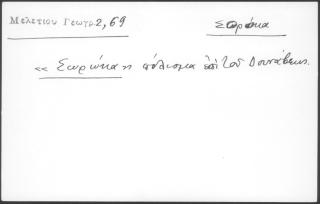 Μελετίου Γεωγρ. 2, 69
Σωρόκα
« Σωρόκα η πόλισμα ἐπὶ τοῦ Δουνάβεως.